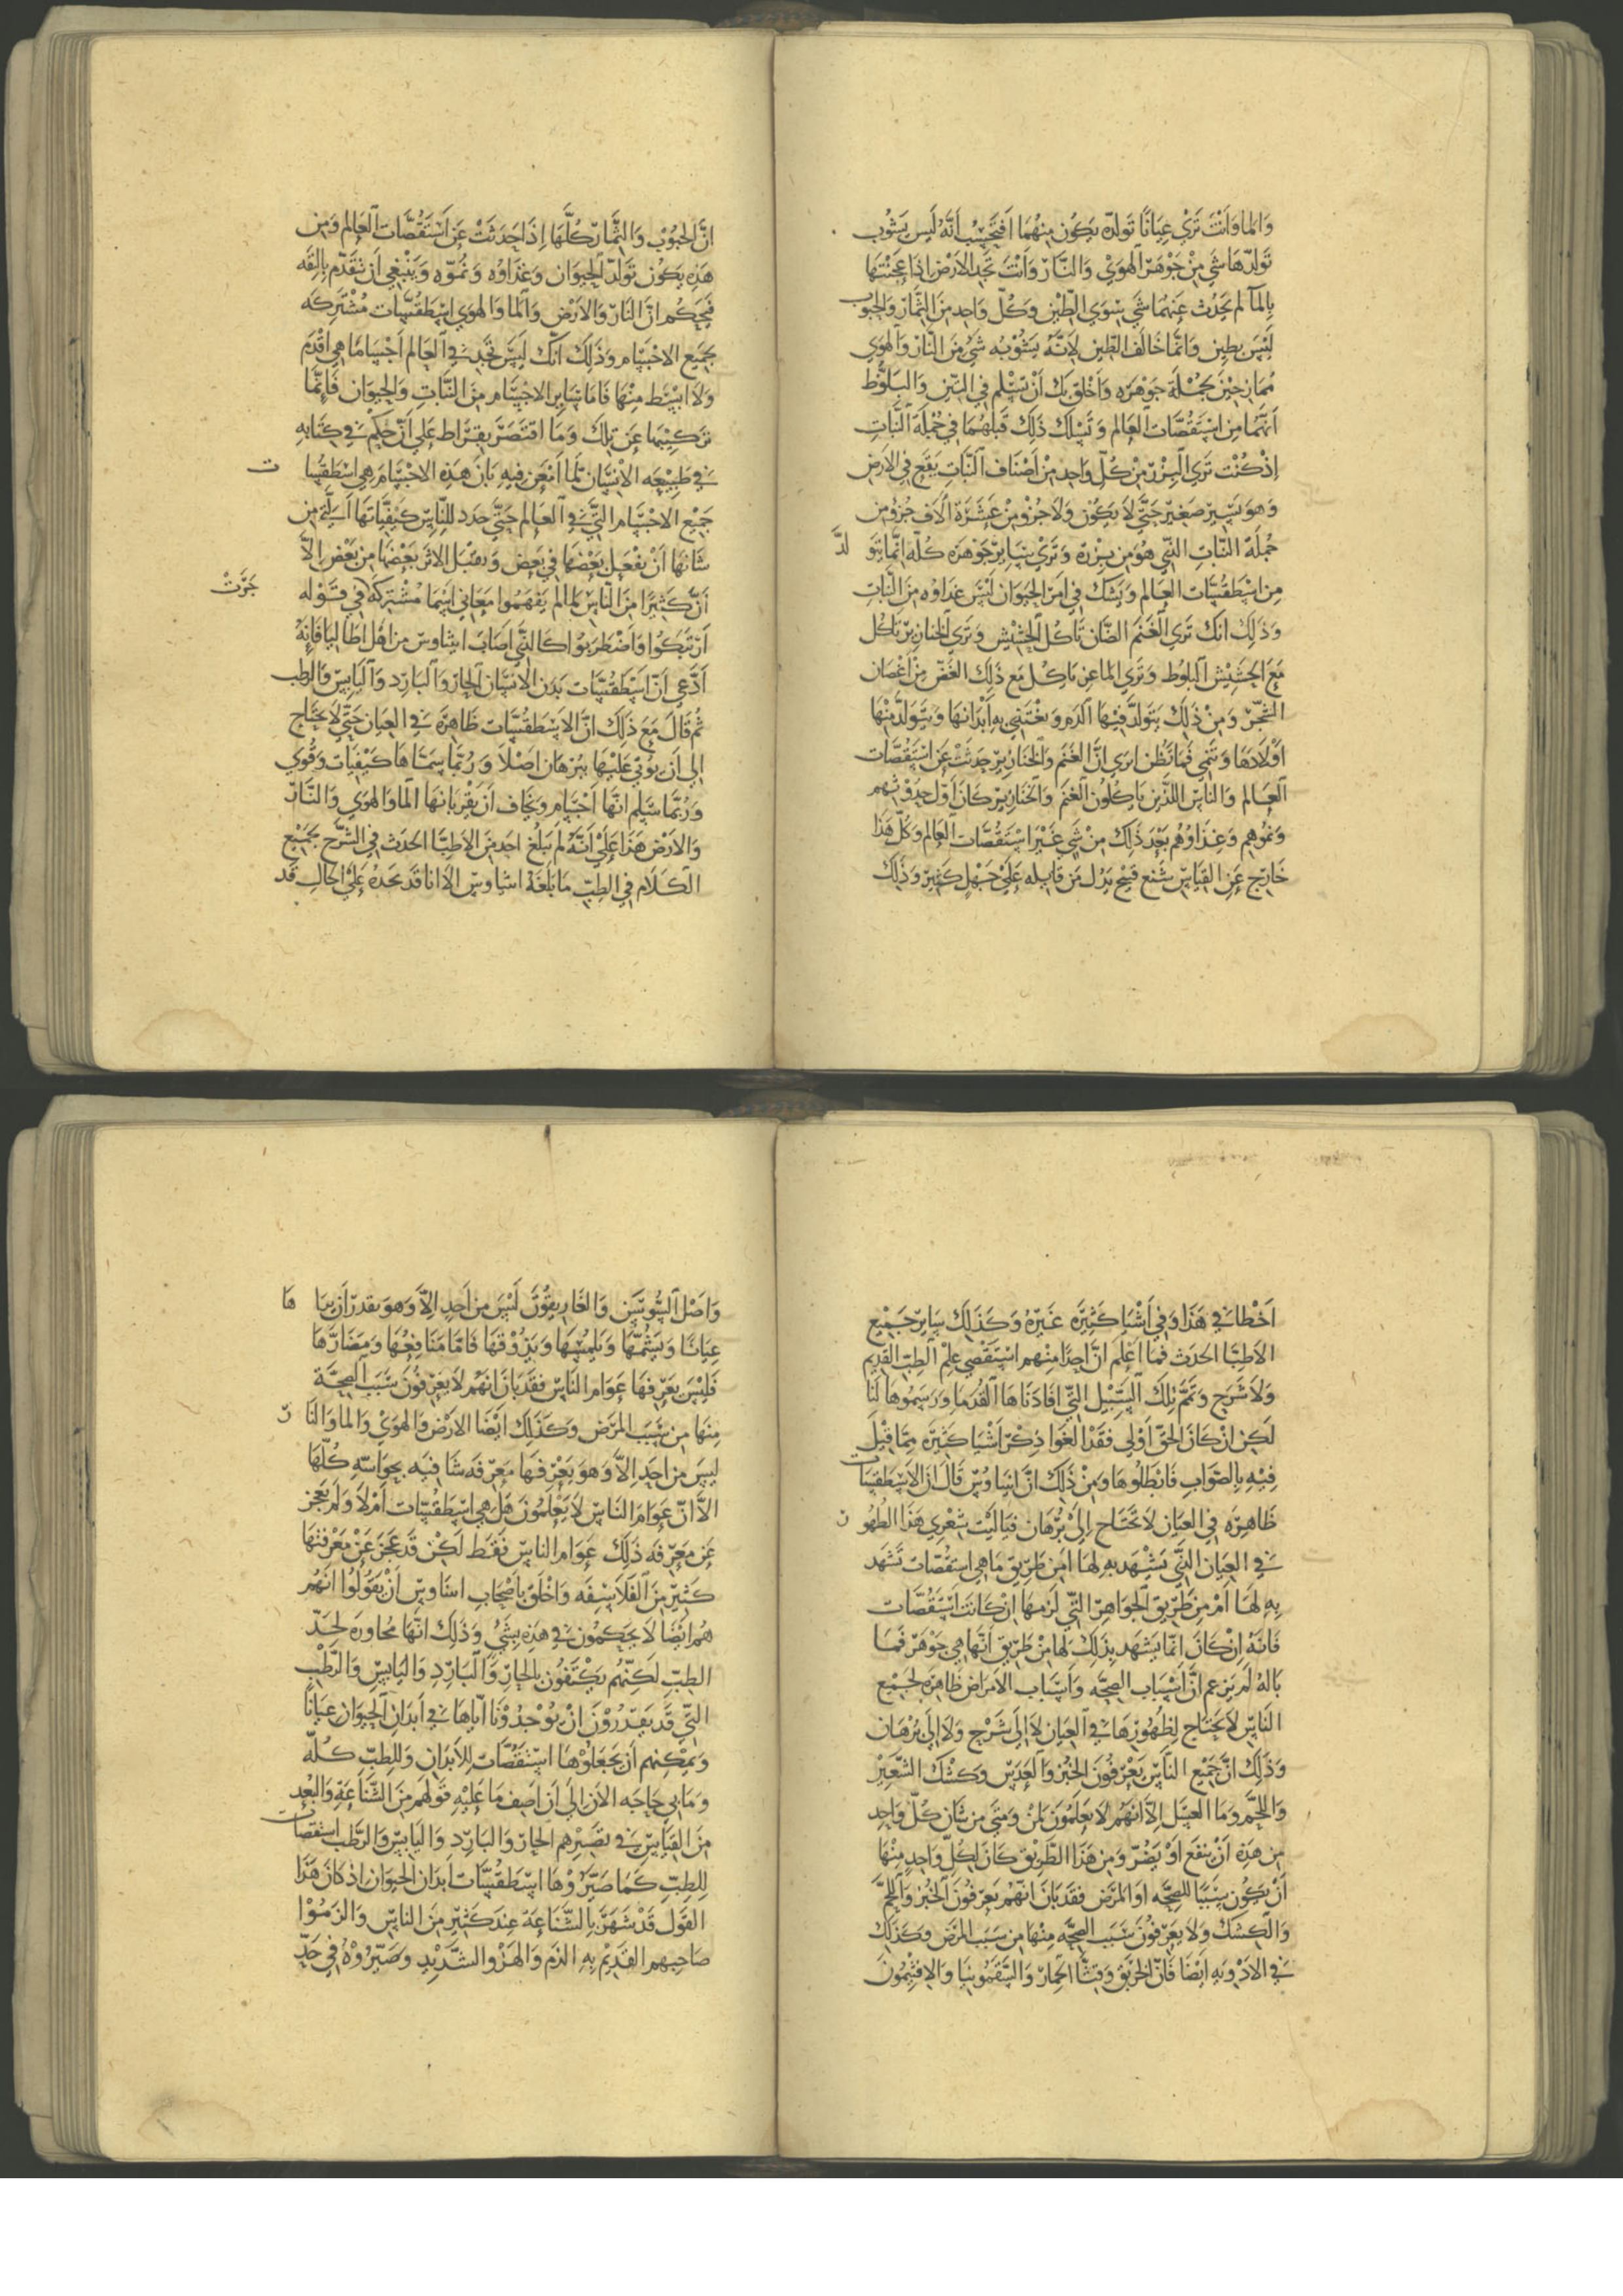 وَالمَا وَانتَ تَرَي عِيَانًا تَولدّه يَكُون مِنهُمَا اَفتَحسِب اَنَّهُ لَيس يَشُوب
تَولدّهَا شَي مِنْ جَوْهَر الهوَيْ وَالنَّار وَانْتَ تجَد الاَرْض اذَا عَجَنْتهَا
بالمآ لم يَحدُث عَنهُمَا شَي سِوَي الطّين وَكُلّ وَاحِد مِنَ الثّمَارْ وَالحبُوب
لَيْسَ بطِين وَانمَّا خَالَف الطّين لاَنَّهُ يَشوْبُه شَيْ مِنَ النَّار وَالهوَي
مُمَازجيْن بجُمْلَة جَوْهَرَه وَاَخلِق بكَ اَنْ تسْلم في التّين وَالبَلوُّط
اَنّهَما مِن اسْتَقُصَّات العَالم وَتسْلك ذَلِكَ قَبلهُمَا في جُمْلَة النَّبَاتِ
اِذ كُنْت تَرَي البزْرَ مِنْ كُلّ وَاحِد مِنْ اَصْنَاف النَّبَاتِ يَقَع في الاَرض
وَهوَ يَسِير صَغِير حَتَّي لاَ يَكُوْن وَلاَ جُزْو مِنْ عَشَرَة اَلاف جُزْو مِن
جُمْلَة النّبَاتِ الَّتي هُوَ مِن بِزْرِة وَتَرَيْ سَايرَ جَوْهَرَه كُلّه اِنمَّا يتَوَ لدَّ
مِن اسْطَقُسَّات العَالم وَيشك في اَمر الحيَوَان لَيْسَ غذَاوُه مِنَ النَّبَاتِ
وَذَلِكَ انكَ تَرَي الغَنَم الضَّان تَاكُل الحشْيش وَتَرَي الخنَازِيرَ تَاكُل
مَعَ الحشِيْش البلوُط وَتَرَي الماعِن يَاكِل مَع ذَلِكَ الغَضّ مِنْ اَغْصَان
الشجَر وَمِنْ ذَلِكَ يَتَولَّد فيْهَا الدَّم وَيغْتذِي بهِ اَبْدَانهَا وَيَتَولَّد مِنْهَا
اَوْلاَدهَا وَتَنْمِي فمَا تَظُن اتري انَّ الغَنَم وَالخنَازِير حِدثَتْ عَن اسْتَقُصَّات
العَالم وَالناسَ اللذَّين يَاكِلُون الغَنَم وَالخنَازِيرَ كَانَ اَوّل حُدُوْثهم
وَنموُهم وَغذَاوُهُم بَعْدَ ذَلِكَ مِنْ شَي غَيْر اسْتَقُصَّات العَالم وَكُلّ هَذَا
خَارِج عَنِ القيَاسَ شنع قبيح يَدُل مَن قايله عَلَيْ جَهْل كَبِير وَذَلِكَ
انَّ الحبُوْب وَالثمَّار كُلَّهَا اِذَا حَدثَتْ عَن اسْتَقُصَّات العَالم وَمِن
هَذِه يَكوُن تَوَلدّ الحيَوَان وَغذَاوُه وَنمُوّه وَيَنْبغي اَن نتَقَدّم بالثِقَه
فنحكُم انَّ النَارَ وَالاَرْض وَالمَا وَالهوَي اسْطَقُسَّات مُشْتَركَه
بجَميَع الاجْسَام وَذَلِكَ انَّكَ لَيسَ تجَد في العَالم اَجْسَامًا هِي اَقْدَم
وَلاَ ابْسَط مِنْهَا فَامَا سَاير الاجْسَام مِنَ النَّبَاتِ وَالحيوَان فَاِنمَّا
تركِيْبهَا عَن تلِكَ وَمَا اقتَصَرَ بقرَاط عَلي اَنْ حَكم في كتَابِه
في طَبيْعَه الاْنسَان لمَّا اَمْعَن فيِه بَانَ هَذِه الاجْسَام هِي اسْطَقُسَا ت
جَميْع الاجْسَام الَّتي في العَالم حَتَّي حَدد للِنَّاس كَيْفيَّاتهَا اَ
شَانهَا اَنْ يفْعَل بَعْضهَا في بَعض وَيقبَل الاثر بَعْضهَا مِن بَعْض الاَّ
اَنّ كَثِيرًا مِنَ النَّاسْ لما لم يَفهَمُوا مَعَاني اَسْمَا مُشْتركَة في قَوْله جَرَتْ
اَرْتَبَكُوا وَاَضْطَربُوا كَالَّتي اصَابَ اسَاوس مِن اَهل اطَاليَا فَاِنَهُ
اَدَّعَي اَنّ اَسْطَقُسَّات بَدَن الاِنسَان الحارّ وَالبَارِد وَاليَابِس وَالرطب
ثمُ قَالَ مَعَ ذَلِكَ انَّ الاسْطَقُسَّات ظَاهِرَة في العيَان حَتّي لاَ يحتَاج
اِلي اَن يُوتي عَليْهَا ببُرْهَان اَصْلاً وَرُبَّمَا سِمَّاهَا كَيْفيَات وَقُوَي
وَرُبَّمَا سَلم انهَّا اَجْسَام وَيخَاف اَن يقر بَانهَا الماَ وَالهوَي وَالنَّار
وَالاَرْض هَذَا عَلَيْ اَنَّهُ لم يَبلغ احَد مِنَ الاطِبَّا الحدَث في الشَرح بجَمَيْع
الكَلاَم في الطِبّ مَا بَلَغَهُ اسَاوسَ الاَ انا قَد نجدُه عَلَيْ احَالِ قَد
اَخْطَا في هَذَا وَفي اَشْيَا كَثِيرَه غَيرْهُ وَكذَلِكَ سَاير جَميْع
الاَطِبَّا الحدَث فمَا اَعْلَم انَّ اَحِدًا مِنْهم اسْتَقْصَي عِلم الطِبّ القَدِيم
وَلاَ شَرَح وَتمَّمَ تِلكَ السَّبِيْل الَّتي افَادَنَاهَا القُدَمَا وَرَسَمُوهَا لنَا
لَكِن انْ كَانَ الحقّ اَوْلي فَقَدْ الغَوا ذِكرَ اَشْيَا كَثِيرَه ممَّا قِيْلَ
فيْهِ بالصَّوَابِ فَابْطَلُوهَا وَمِنْ ذَلِكَ انَّ اسَاوُسَ قَالَ انَّ الاسْطَقسَات
ظَاهِرَه في العيَان لاَ تحتَاج اِلَيْ بُرْهَان فيَاليْت شعْري هَذَا الظهُو ر
في العِيَان الَّتي يَشْهَد بهِ لهَا اَمِن طَرِيق مَا هِي اسْتَقُصّات تَشهَد
بِهِ لهَا اَمْ مِن طَرِيق الجوَاهِر الَّتي لَزمهَا اِن كَانَت اسْتَقُصَّات
فَانَهُ اِنْ كَانَ اِنمّا يَشهَد بذَلِكَ لهَا مِنْ طَرِيقِ اَنّهَا هِي جَوْهَر فمَا
بَالهُ لَم يَزعم انَّ اَسْبَاب الصِحَّه وَاَسْبَاب الاَمرَاض ظَاهِرَه لجَميْع
النَّاسِ لاَ يحَتَاج لظُهُورهَا في العِيَان لاَ اِلَي شَرْح وَلاَ اِلَي بُرْهَان
وَذَلِكَ انَّ جَميْع النَّاسَ يَعْرفوُنَ الخُبْز وَالعَدَس وَكشْك الشَّعِيرْ
وَاللَّحْم وَمَا العسَل اِلاَّ انهُم لاَ يَعْلَمُونَ لمنْ وَمَتَي مِن شَان كُلّ وَاحِد
مِن هَذِهْ اَنْ ينفَع اَوْ يَضُرّ وَمِن هَذَا الطَّرِيْق كَانَ لكُلّ وَاحِدٍ مِنْهَا
اَنْ يَكُون سَببًا للصِحَّه اَو المرَض فقَد بَانَ انّهُم يَعرفُونَ الخبْز وَاللَّحْم
وَالكشْك وَلاَ يَعرفُونَ سَبَب الصِحَّه مِنْهَا مِن سَبَب المرَض وَكذَلِكَ
في الادْوِيَهِ ايْضًا فَانّ الخرْبَق وَقثَّا الحمَارْ وَالسَّقَمُونيَا وَالافثِيمُونَ
وَاصْل السُّوسَن وَالغَارِيقوُنَ لَيْسَ مِن اَحِدٍ الاَّ وَهوَ يقدِر اَن يرَا هَا
عِيَانًا وَيَشُمَّهَا وَيلمِسَهَا وَيَذُوْقَهَا فَامَّا مَنَافِعُهَا وَمَضَارّهَا
فَليْسَ يَعَرفهَا عَوَام النَّاسْ فقَد بَانَ انهُم لاَ يَعْرفوُنَ سَبَب الصِحَّة
مِنهَا مِن سَبَب المرَض وَكذَلِكَ ايضًا الارْض وَالهوَيْ وَالماَ وَالنَا رّ
ليسَ مِن احَدٍ الاَّ وَهوَ يَعْرفهَا مَعرِفَه شَافيَه بحِوَاسّه كُلّهَا
الاَّ انَّ عَوَامَ النَاسَ لاَ يَعْلَمُونَ هَل هِي اسْطَقُسّات اَمْ لاَ وَلم يَعْجز
عَن مَعرِفَه ذَلِكَ عَوَام الناس فَقط لَكِن قَد عَجَزَ عَنْ مَعْرفتهَا
كَثِير مِنَ الفَلاَسِفَه وَاَخْلقْ باَصْحَاب اسَاوس اَنْ يقُولُوا انهُم
هُم ايْضًا لاَ يحَكمُون في هَذِه بِشَيْ وَذَلِكَ انهَّا مجَاوِزَه لحَدّ
الطِبّ لَكِنّهُم يَكْتفُون بالحارّ وَالبَارِدِ وَاليَابِس وَالرَّطْب
الَّتي قَد يَقدِرُوْنَ انْ يُوْجِدُوْنَا اِيَّاهَا في اَبدَان الحيَوَان عِيَانًا
وَيمكِنهم اَن يَجعَلوُهَا اسْتَقُصَّات للِاَبدَان وَللطبّ كُلّه
وَمَا بي حَاجَه الاَن اِلي اَن اَصِف مَا عَلَيْهِ قَولهم مِنَ الشَّنَاعَةِ وَالبُعْد
مِنَ القيَاسَ في تصَيّيرهم الحارّ وَالبَارِد وَاليَابِسَ وَالرَّطب استقصات
للِطِبّ كَمَا صَيَّرُوْهَا اسْطَقُسَّات اَبدَان الحيَوَان اِذ كانَ هَذَا
القوَل قَدْ شَهَرَ بالشَّنَاعَة عِندَ كَثِير مِنَ النَّاسِ وَالزمُوْا
صَاحِبهم القَدِيم بهِ الذم وَالهزوْ الشَّدِيْد وَصَيَّرُوْهُ في حَدِّ